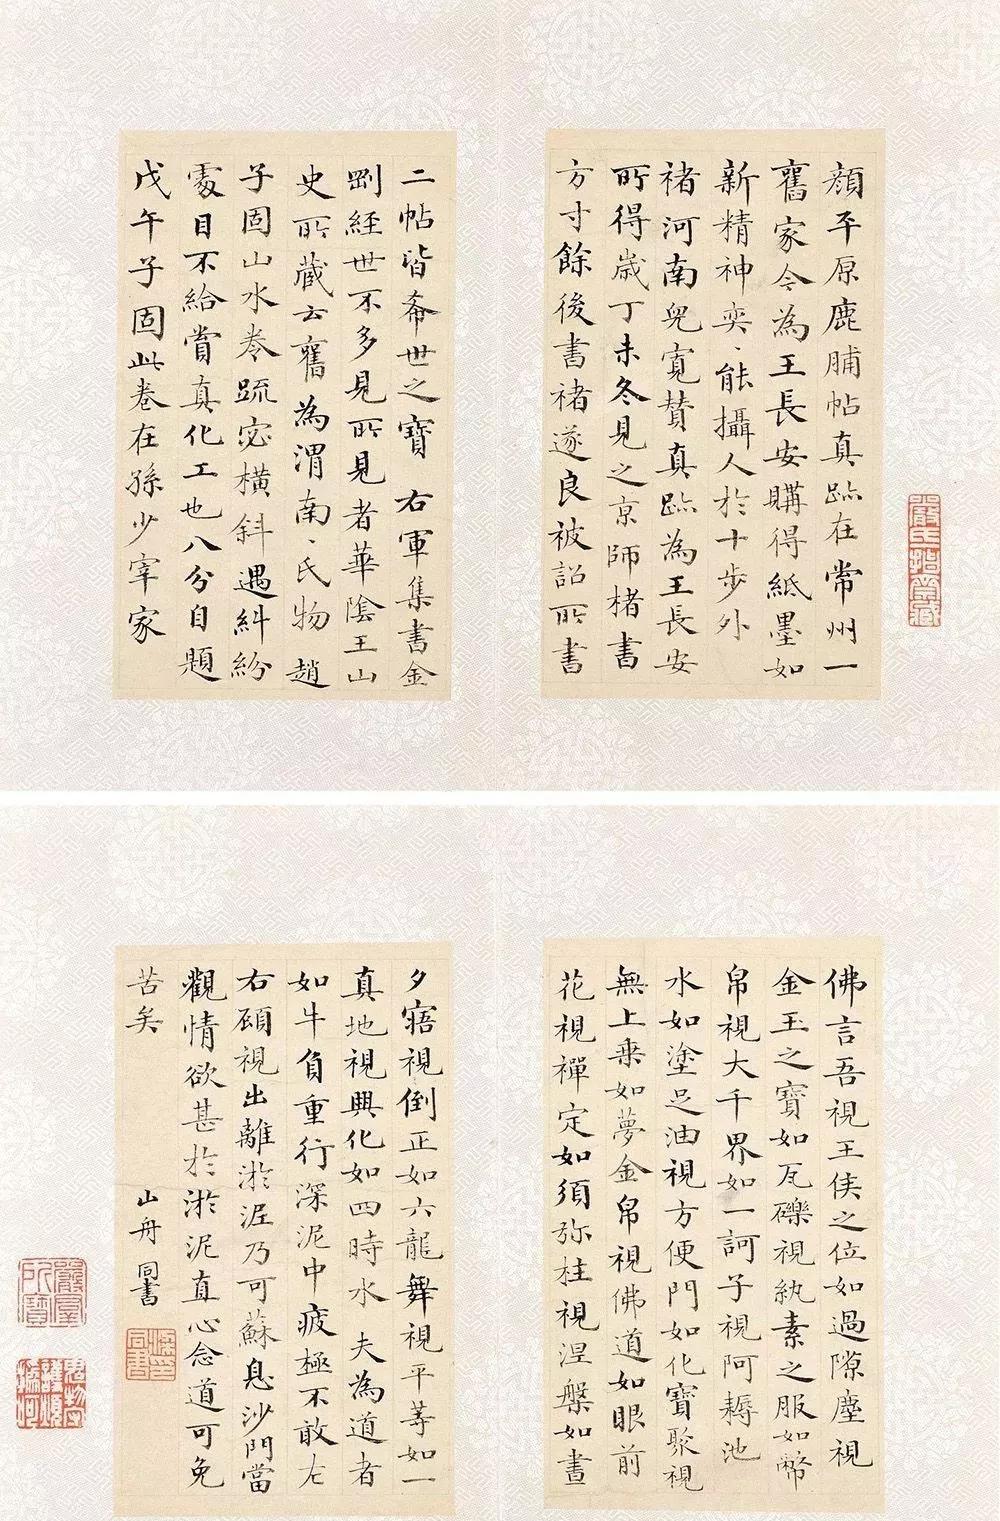 顔平原鹿脯帖真跡在常州一
舊家今為王長安購得紙墨如
新精神奕〻能攝人於十步外
褚河南兒寛賛真跡為王長安
所得歲丁未冬見之京師楮書
方寸餘後書褚遂良被詔所書
二帖皆希世之寶 右軍集書金
剛經世不多見所見者華陰王山
史所藏云舊為渭南〻氏物趙
子固山水卷疏宻橫斜遇糾紛
處目不給賞真化工也八分自題
戊午子固此卷在孫少宰家
佛言吾視王侯之位如過隙塵視
金玉之寶如瓦礫視紈素之服如幣
帛視大千界如一訶子視阿耨池
水如塗足油視方便門如化寶聚視
無上乘如夢金帛視佛道如眼前
花視禪定如須弥柱視涅槃如晝
夕寤視倒正如六龍舞視平等如一
真地視興化如四時水 夫為道者
如牛負重行深泥中疲極不敢左
右顧視出離淤泥乃可蘇息沙門當
觀情欲甚於淤泥直心念道可免
苦矣
山舟 同書
梁印同書